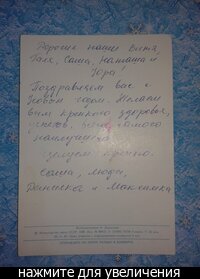 Дорогие наши Витя,
Галя, Саша, Наташа и
Юра!
Поздравляем вас с
Новым годом. Желаем
вам крепкого здоровья,
успехов, всего самого
наилучшего.
Целуем крепко.
Саша, Люда,
Дениска и Максимка
нажмите для увеличения